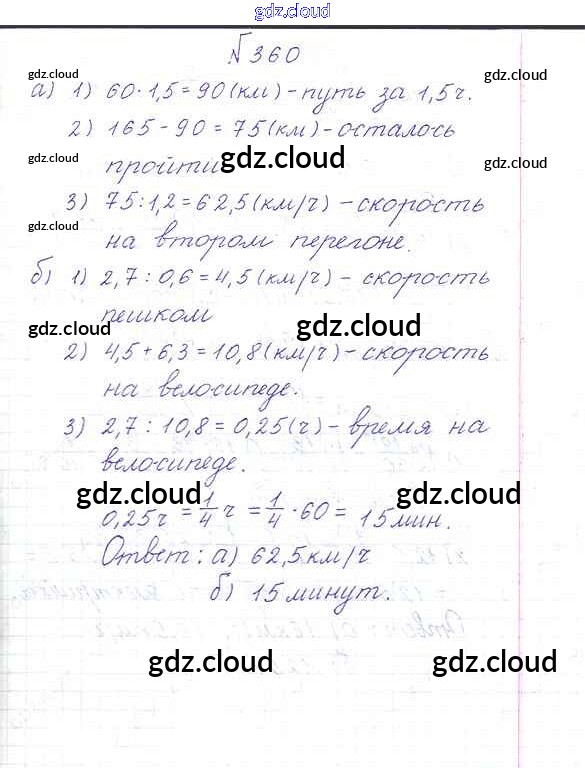 gdz.cloud
№360
gdz.cloud gdz.cloud
а) 1) 60·1,5=90(км)-путь за 1,5ч.
2) 165-90=75(км)-осталось
gdz.cloud gdz.cloud gdz.cloud
пройти
3) 75:1,2=62,5(км/ч)-скорость
gdz.cloud
на втором перегоне.
б) 1) 2,7:0,6=4,5(км/ч)-скорость
gdz.cloud gdz.cloud
пешком
2) 4,5+6,3=10,8(км/ч)-скорость
на велосипеде.
3) 2,7:10,8=0,25(ч)-время на
велосипеде.
gdz.cloud gdz.cloud
0,25ч = 1/4 ч = 1/4 · 60 = 15мин.
Ответ: а) 62,5км/ч
б) 15минут.
gdz.cloud gdz.cloud